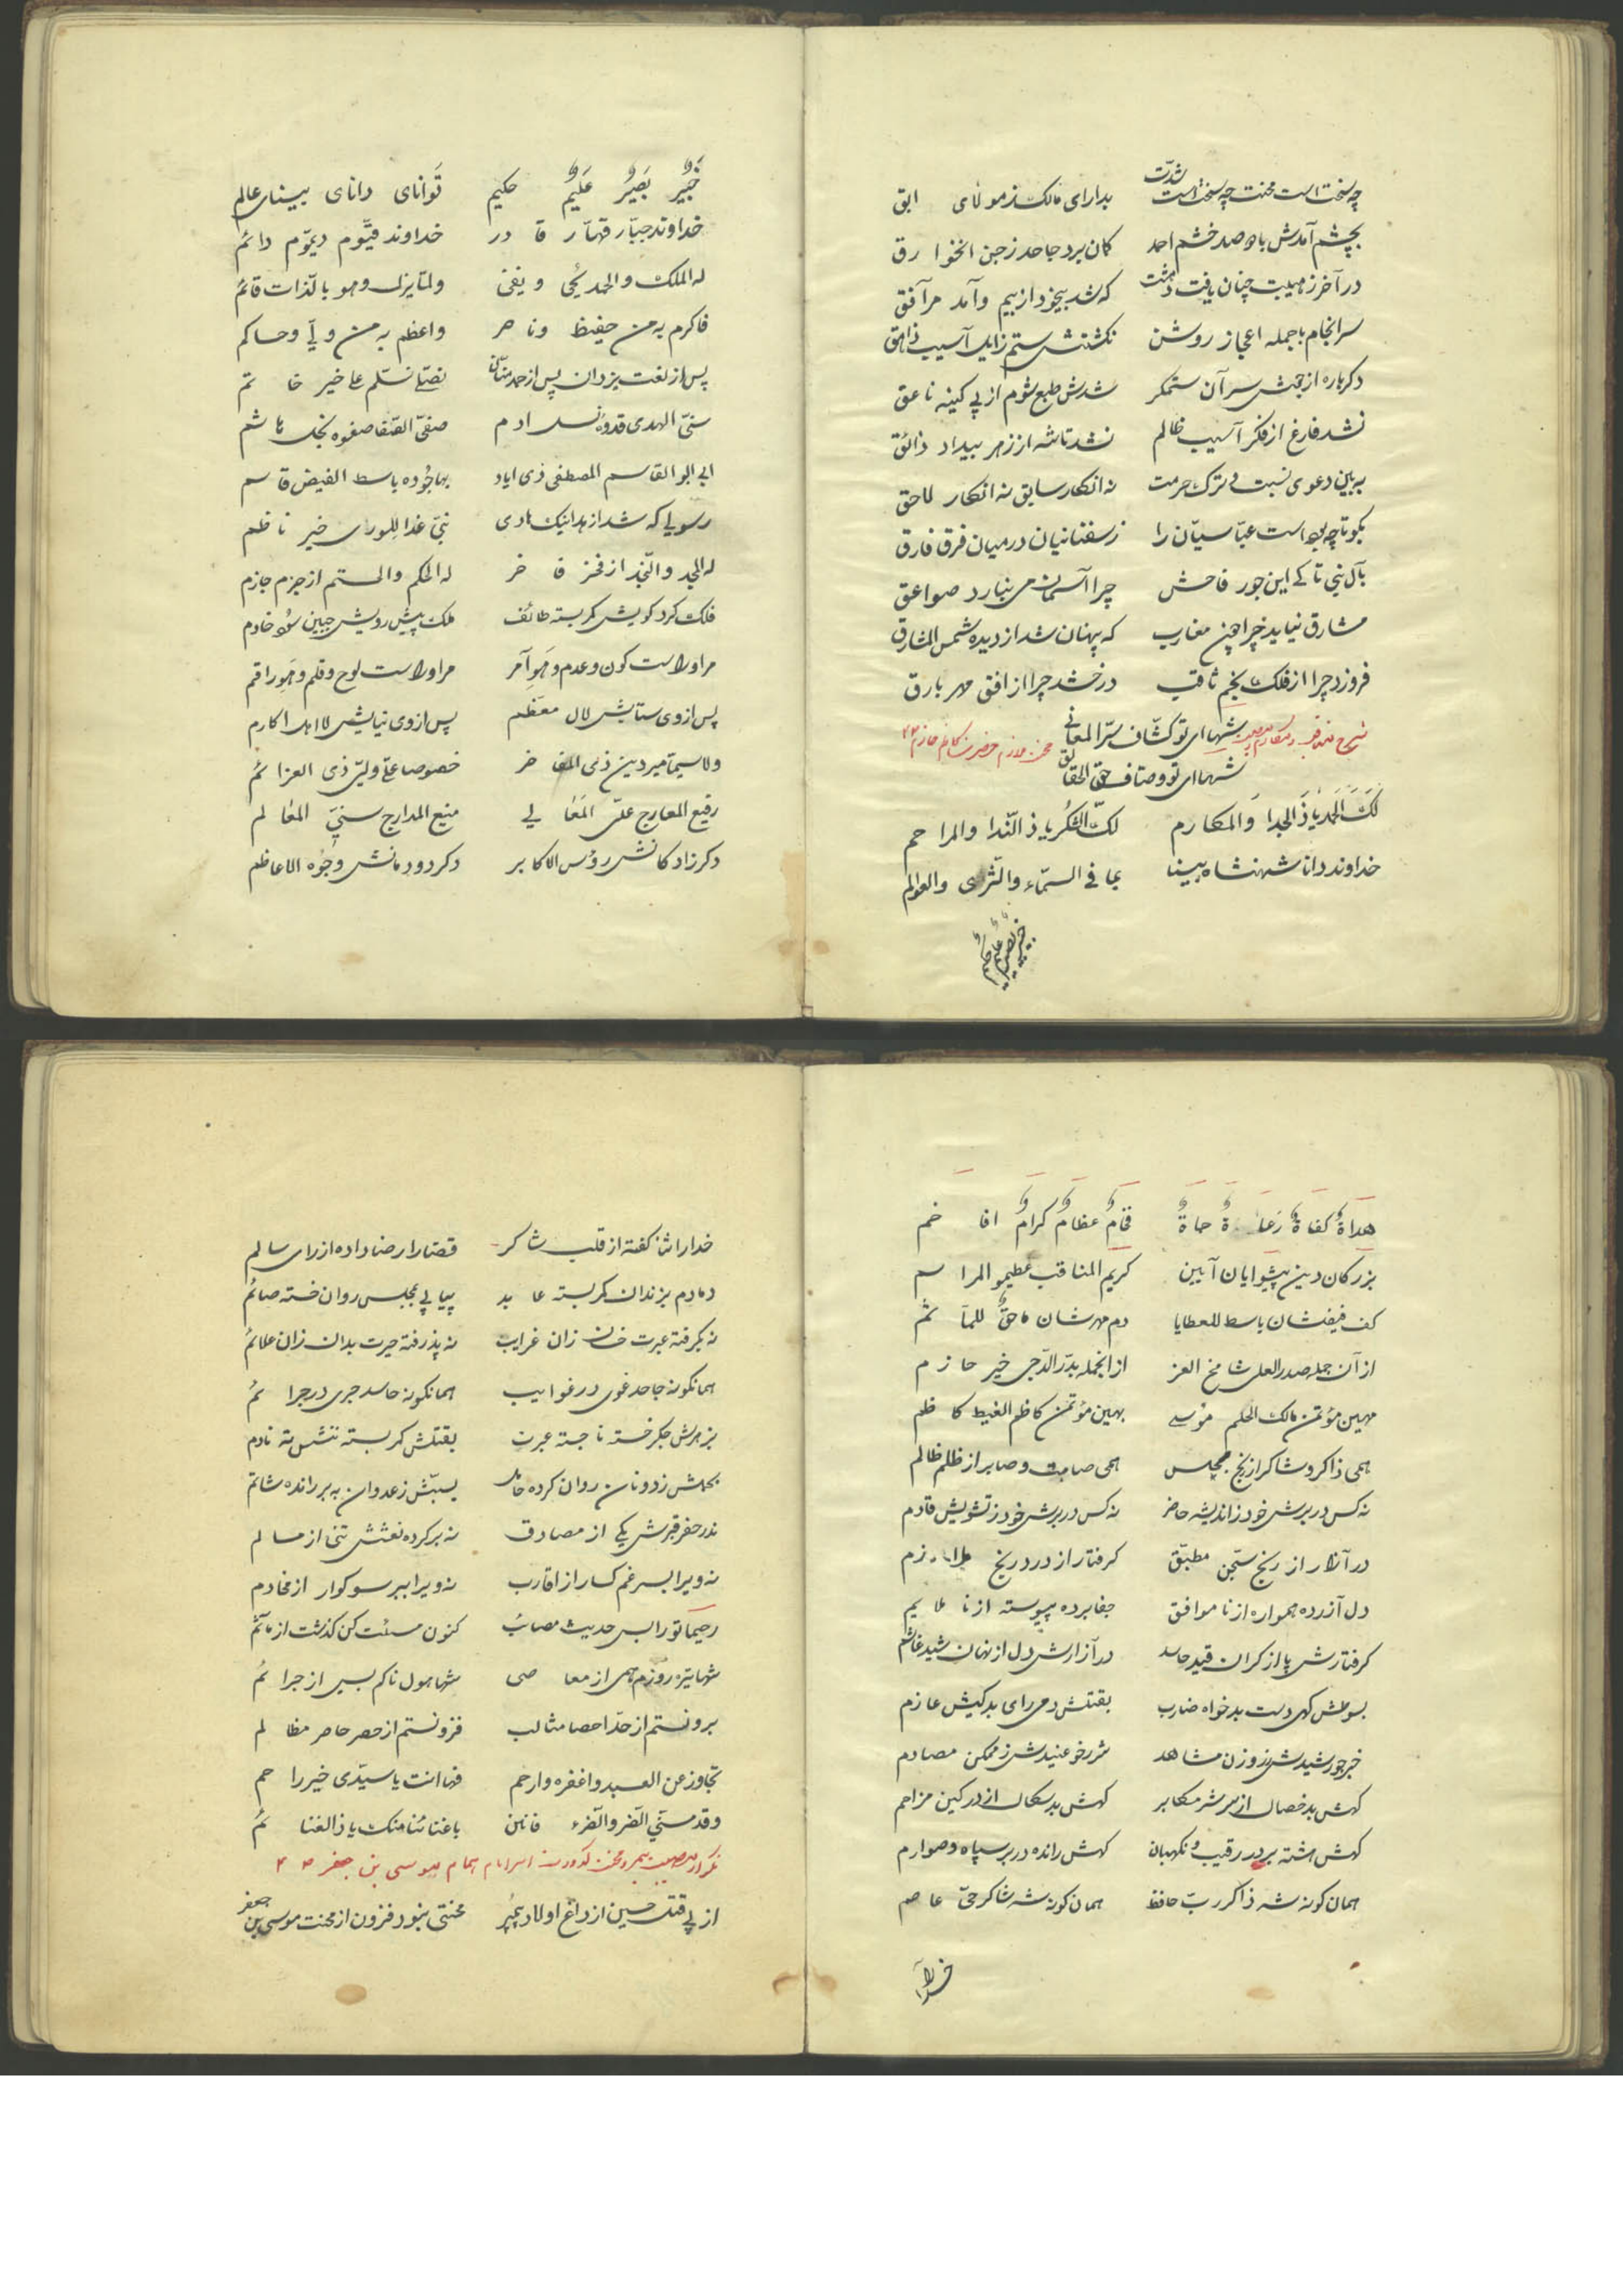 چه سخت است محنت چه سخت است شدّت بدارای مالک ز مولای ابق
بچشم آمدش با دو صد خشم احمد کمان برد جاحد ز جن الخوارق
در آخر ز هیبت چنان یافت دهشت که شد بیخود از بیم و آمد مرآفق
سرانجام با جمله اعجاز روشن نکشتش ستم زایل آسیب زاهق
دکرباره از جنبش سر آن ستمکر شدش طبع شوم از پی کینه ناعق
نشد فارغ از فکر آسیب ظالم نشد تا شه از زهر بیداد ذائق
به بین دعوی نسبت و ترک حرمت نه انکار سابق نه انکار لاحق
بکو تا چه بود است عبّاسیّان را ز سفیانیان در میان فرق فارق
بآل نبی تا کی این جور فاحش چرا آسمان می نبارد صواعق
مشارق نیاید چرا چون مغارب که پنهان شد از دیده شمس المشارق
فروزد چرا از فلک نجم ثاقب درخشد چرا از افق مهر بارق
شها ای تو کشّاف سرّ المعانی
شها ای تو وصّاف حقّ الحقائق
لَکَ الحَمدُ یا ذَا الجدا وَ المکارم لکَ الشّکرُ یا ذا النّدا والمراحم
خداوند دانا شهنشاه بینا بما فی السمّاء والثّری والعوالم
خبیر بصیر علیم حکیم
خَبیرٌ بَصیرٌ عَلیمٌ حکیم تَوانای دانای بینای عالم
خداوند جبّار قهّار قادر خداوند قیّوم دیّوم دائم
له الملک والحمد یحیی و یفنی ولمّا یزل و هو بالذات قائم
فاکرم به من حفیظ و ناصر واعظم به من ولیّ و حاکم
پس از نعت یزدان پس از حمد منّان نصلّی نسلّم علی خیر خاتم
سنیّ الهدی قدوهٔ نسل ادم صفیّ الصّفا صفوه نجل هاشم
ابی ابوالقاسم المصطفی ذی ایاد بها جُوده باسط الفیض قاسم
رسولی که شد از هدا نیک هادی نبیّ غدا للوری خیر ناظم
له المجد والنّجد از فخر فاخر له الحکم والحتم از جزم جازم
فلک کرد کویش کمر بسته طائف ملک پیش رویش جبین سوده خادم
مر او راست کون و عدم و هو آمر مر او راست لوح و قلم و هو راقم
پس از وی ستایش لآل معظّم پس از وی نیایش لاهل اکارم
ولاسیّما میر دین ذی المفاخر خصوصا علیّ ولیّ ذی العزائم
رفیع المعارج علیّ المَعالی منیع المدارج سنیّ المعالم
دکر زادکانش رؤس الاکابر دکر دودمانش وجُوه الاعاظم
هداةٌ کفاةٌ رعاةٌ حماةٌ فخامٌ عظامٌ کرامٌ افاخم
بزرکان دین پیشوایان آیین کریم المناقب عظیموا المراسم
کف فیضشان باسط للعطایا دم مهرشان ماحقٌ للمآثم
از آن جمله صدر العلی شامخ العز از انجمله بدر الدّجی خیر حازم
مهین مؤتمن مالک الحلم موسی بهین مؤتمن کاظم الغیظ کاظم
همی ذاکر و شاکر از رنج مجلس همی صامت و صابر از ظلم ظالم
نه کس در برش خود ز اندیشه حاضر نه کس در برش خود ز تشویش قادم
در آزار از رنج سجن مطبّق کرفتار از درد رنج ملازم
دل آزرده همواره از ناموافق جفا برده پیوسته از ناملایم
کرفتارش پا از کران قید حاسد در آزارش دل از نهان شید غاشم
بسوطش کهی دست بدخواه ضارب بقتلش دمی رای بدکیش عازم
کهش بدخصال از سر شر مکابر کهش بدسکال از در کین مزاحم
کهش هشته بر در رقیب و نکهبان کهش رانده در بر سپاه و صوارم
همان کونه شه ذاکر ربّ حافظ همان کونه شه شاکر حیّ عاصم
خدارا
خدا را ثنا کفته از قلب شاکر قضا را رضا داده از رای سالم
دمادم بزندان کمر بسته عابد پیاپی بمجلس روان خسته صائم
نه بکرفته عبرت خسان زان غرایب نه پذرفته حیرت بدان زان علائم
همانکونه جاحد غوی در غوایب همانکونه حاسد جری در جرائم
بزهرش جکر خسته ناجسته عبرت بقتلش کمر بسته ننشسته نادم
نه ویرا بسر غمکسار از اقارب نه ویرا ببر سوکوار از مخادم
رحیما تو را بس حدیث مصائب کنون مسئلت کن کذشت از مآثم
شها تیره روزم همی از معاصی شها هولناکم بسی از جرائم
برونستم از حدّ احصا مثالب فزونستم از حصر حاصر مظالم
تجاوز عن العبد واغفره وارحم فها انت یا سیّدی خیر راحم
وقد مسّنی الضّر والضّرء فانّی باغنائنا منک یا ذا الغنائم
از پی قتل حسین از داغ اولاد پیمبر محنتی نبود فزون از محنت موسی بن جعفر